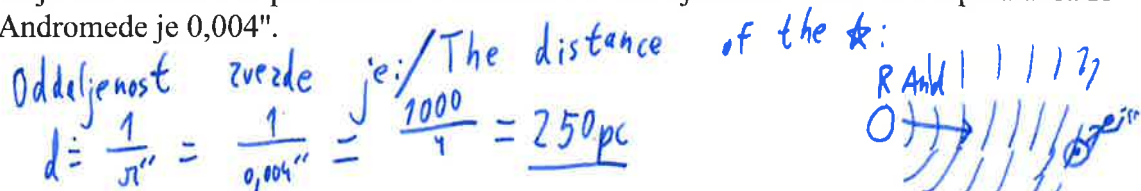 Andromede je 0,004".
Oddaljenost zvezde je:/The distance of the ☆:
d = 1/π" = 1/0,004" = 1000/4 = 250pc
R And